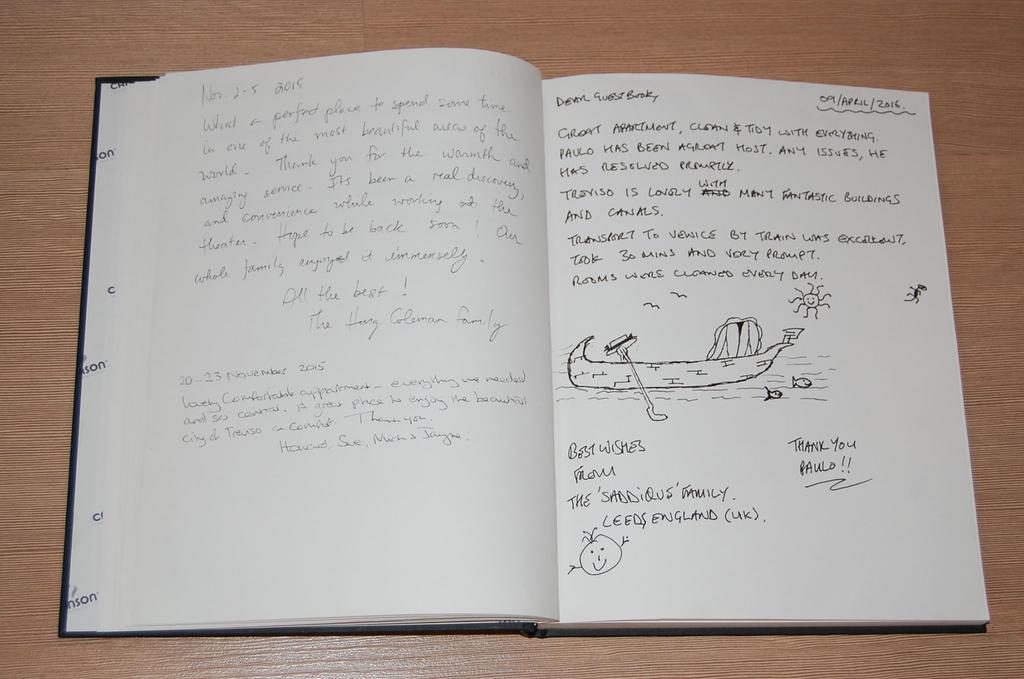 Nov. 2-5 2015
What a perfect place to spend some time
in one of the most beautiful areas of the
world. Thank you for the warmth and
amazing service. Its been a real discovery,
and convenience while working at the
theater. Hope to be back soon! Our
whole family enjoyed it immensely.
All the best!
The Coleman family
20-23 November 2015
Lovely Comfortable appartment - everything we needed
and so central. A great place to enjoy the beautiful
city of Treviso in comfort. Thank you.
Howard, Sue,
DEAR GUESTBOOK,
09/APRIL/2016.
GREAT APARTMENT, CLEAN & TIDY WITH EVERYTHING.
PAULO HAS BEEN A GREAT HOST. ANY ISSUES, HE
HAS RESOLVED PROMPTLY.
TREVISO IS LOVELY WITH MANY FANTASTIC BUILDINGS
AND CANALS.
TRANSPORT TO VENICE BY TRAIN WAS EXCELLENT.
TOOK 30 MINS AND VERY PROMPT.
ROOMS WERE CLEANED EVERY DAY.
BEST WISHES
FROM
THE 'SADDIQUS' FAMILY.
LEEDS, ENGLAND (UK).
THANK YOU
PAULO!!